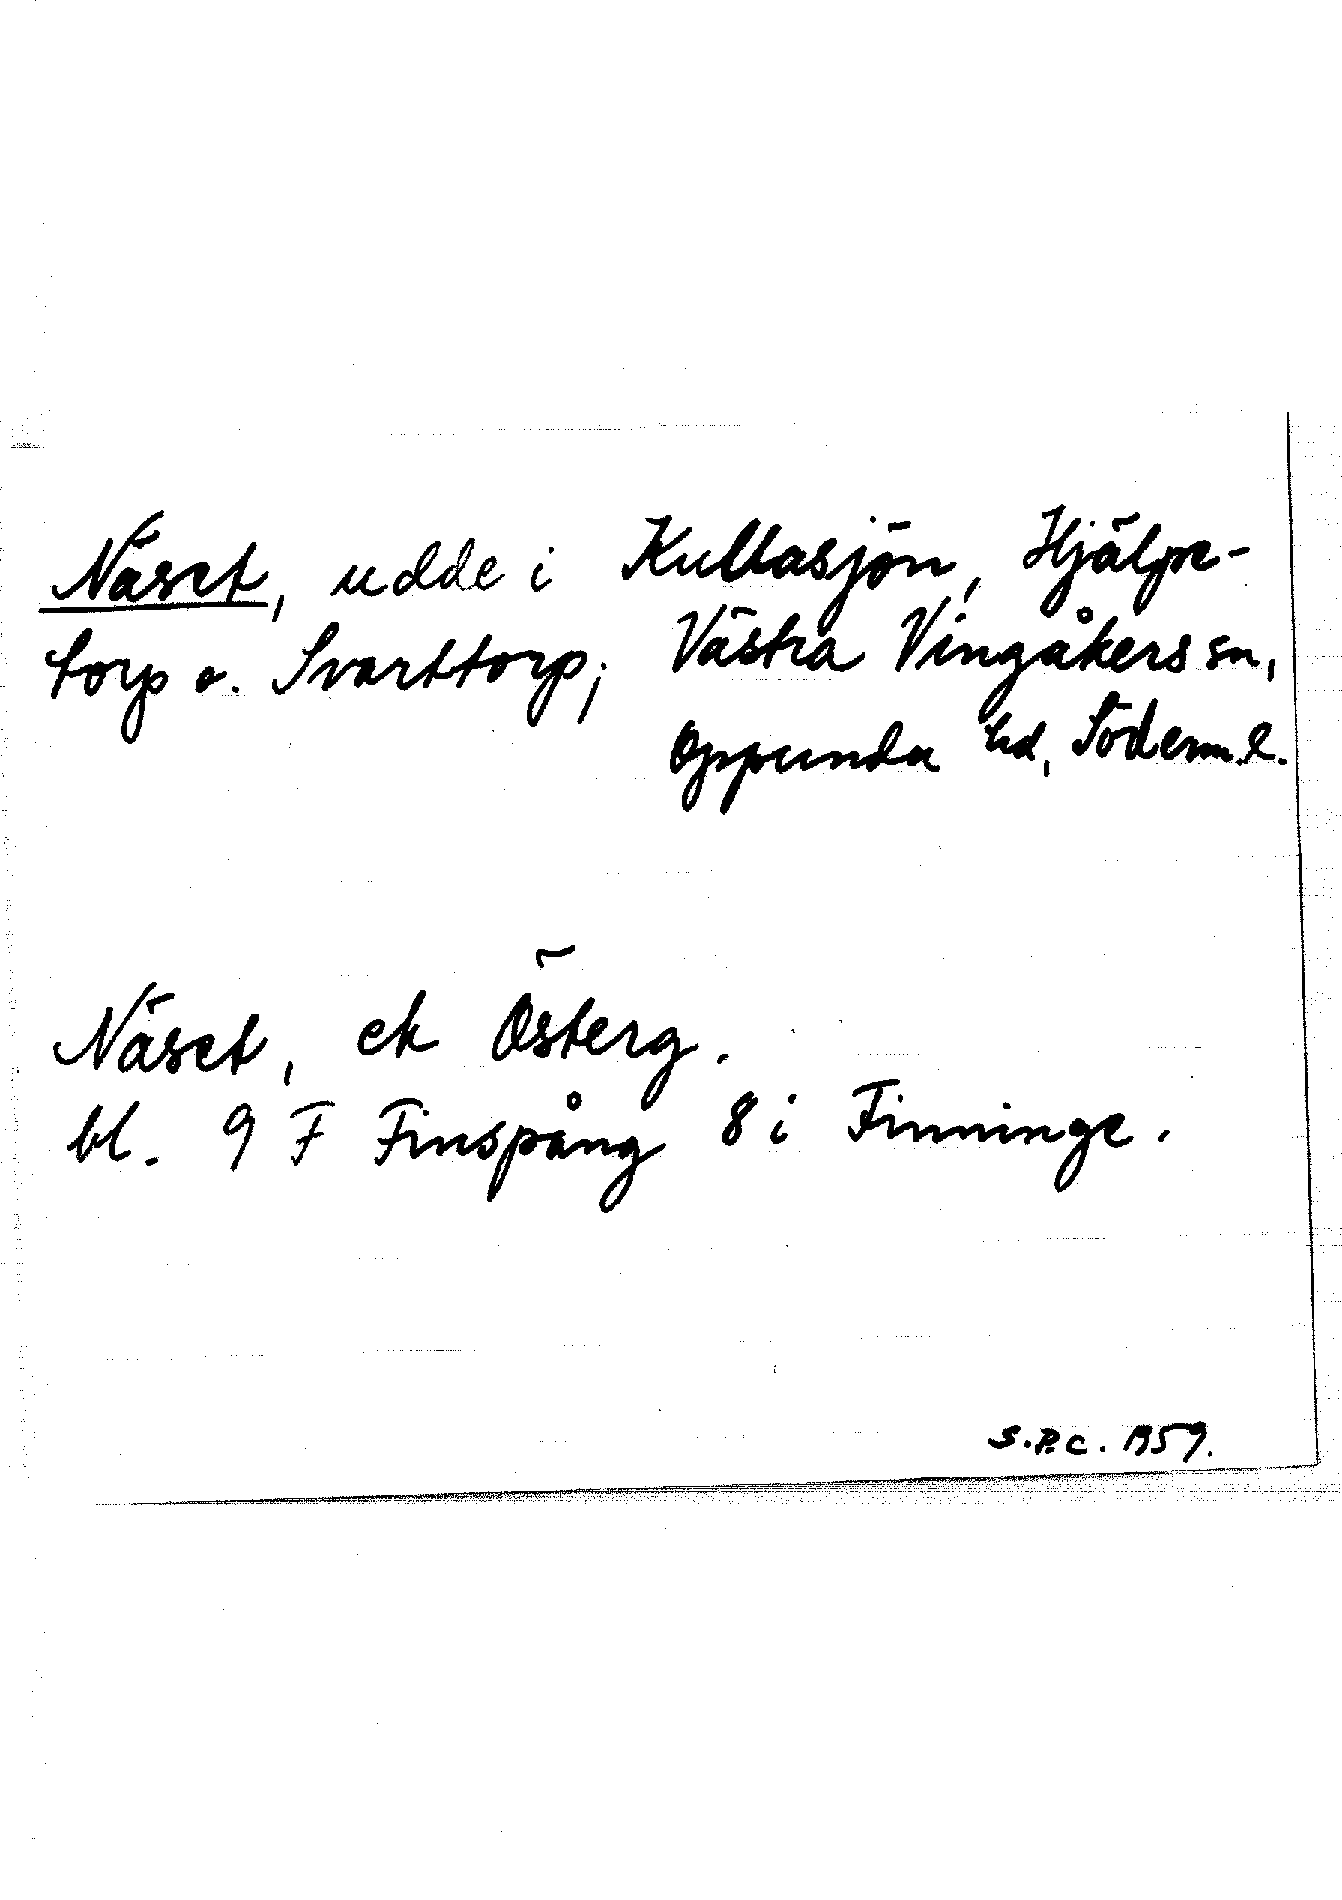 Näset, udde i Kullasjön, Hjälpe-
torp o. Svarttorp; Västra Vingåkers sn,
Oppunda hd, Söderm.l.
Näset, ek Österg.
bl. 9 F Finspång 8 i Finninge.
S.P.C. 1959.